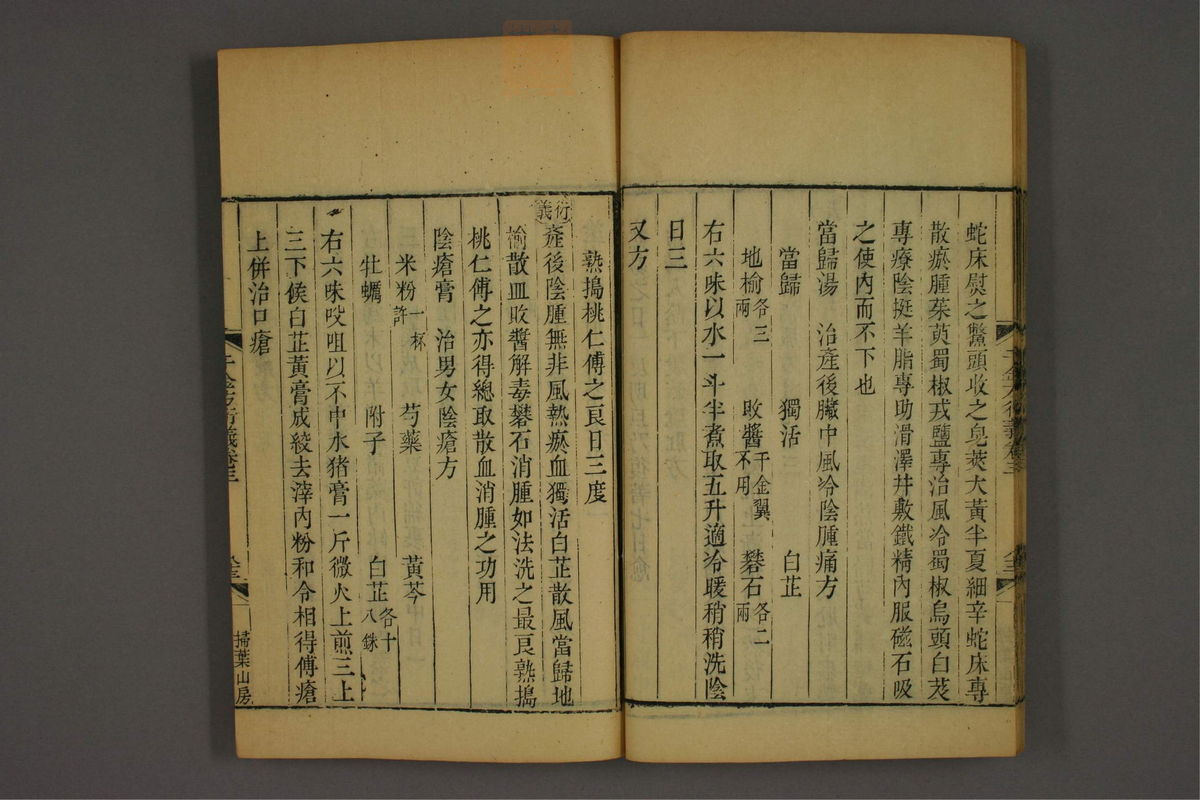 蛇床熨之鱉頭收之皂莢大黃半夏細辛蛇床專
散瘀腫茱萸蜀椒戎鹽專治風冷蜀椒烏頭白芨
專療陰挺羊脂專助滑澤井敷鐵精內服磁石吸
之使內而不下也
當歸湯　治產後臟中風冷陰腫痛方
當歸　獨活　白芷
地榆各三兩　敗醬千金翼不用　礬石各二兩
右六味以水一斗半煮取五升適冷暖稍稍洗陰
日三
又方
熟搗桃仁傅之良日三度
衍義產後陰腫無非風熱瘀血獨活白芷散風當歸地
榆散血敗醬解毒礬石消腫如法洗之最良熟搗
桃仁傅之亦得總取散血消腫之功用
陰瘡膏　治男女陰瘡方
米粉一杯許　芍藥　黃芩
牡蠣　附子　白芷各十八銖
右六味㕮咀以不中水猪膏一斤微火上煎三上
三下候白芷黃膏成絞去滓內粉和令相得傅瘡
上併治口瘡
千金方衍義卷三
掃葉山房